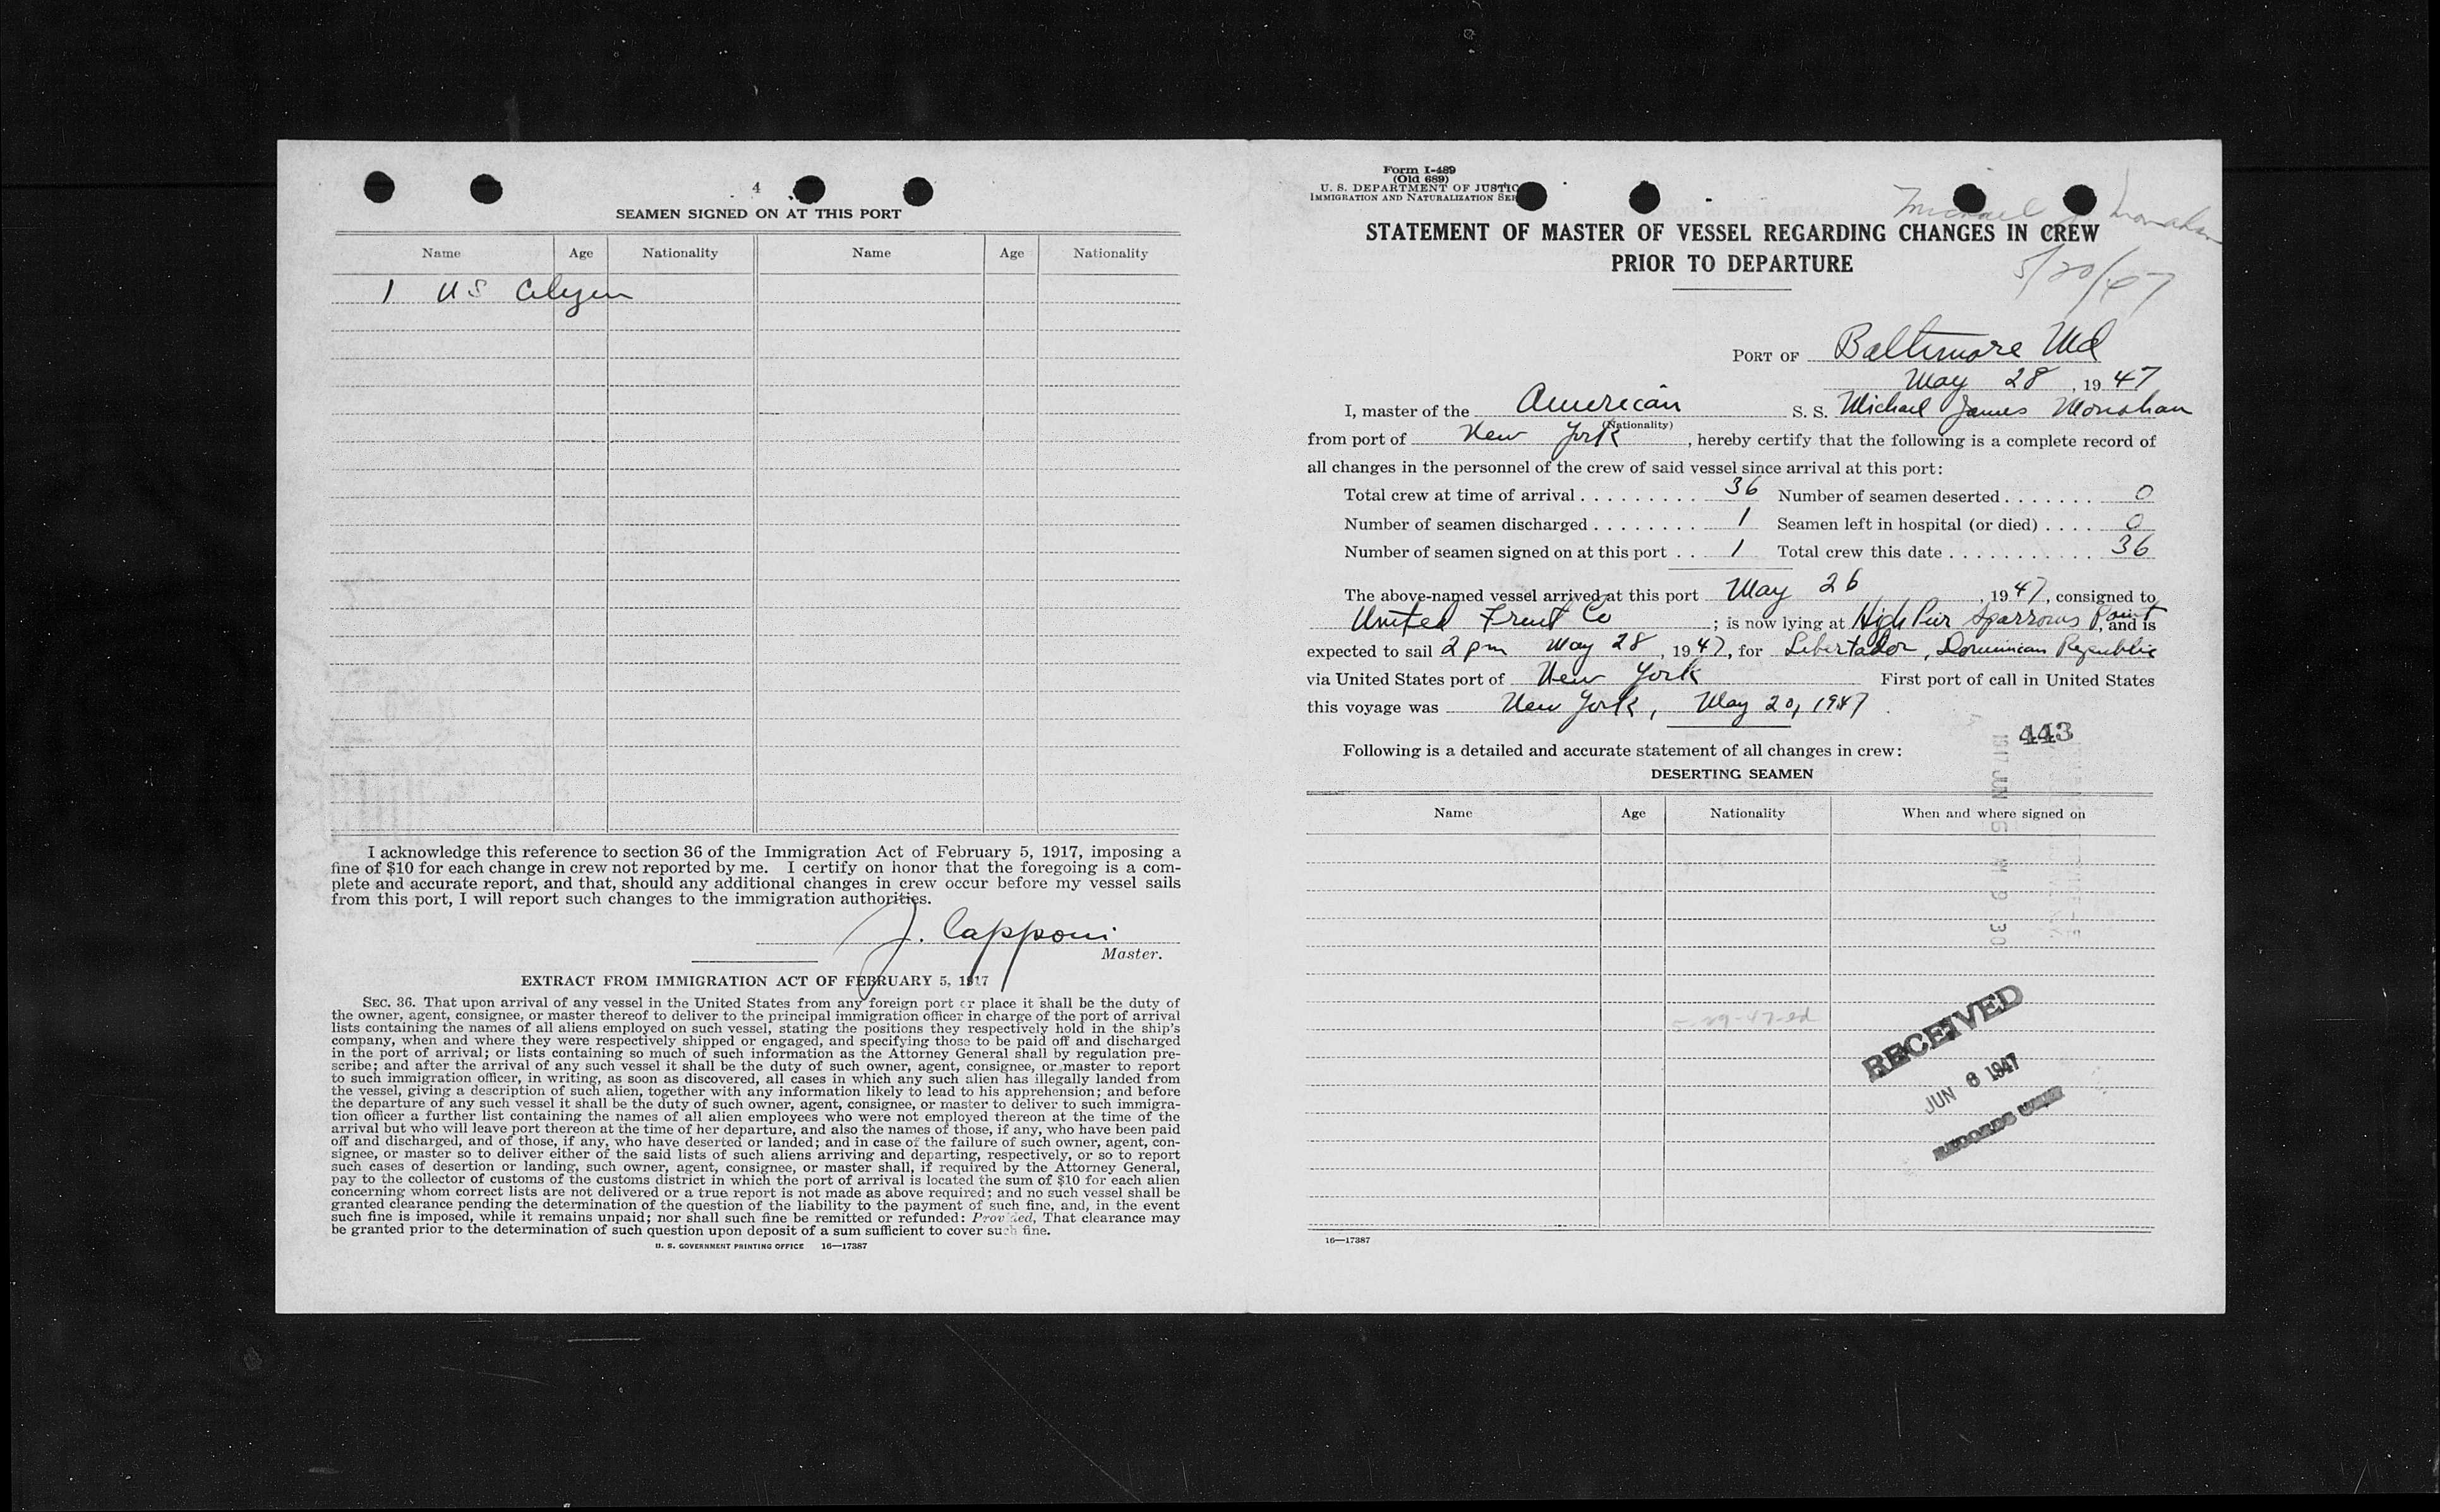 4
SEAMEN SIGNED ON AT THIS PORT
Name Age Nationality Name Age Nationality
1 US Citizen
I acknowledge this reference to section 36 of the Immigration Act of February 5, 1917, imposing a
fine of $10 for each change in crew not reported by me. I certify on honor that the foregoing is a com-
plete and accurate report, and that, should any additional changes in crew occur before my vessel sails
from this port, I will report such changes to the immigration authorities.
J. Capponi
Master.
EXTRACT FROM IMMIGRATION ACT OF FEBRUARY 5, 1917
SEC. 36. That upon arrival of any vessel in the United States from any foreign port or place it shall be the duty of
the owner, agent, consignee, or master thereof to deliver to the principal immigration officer in charge of the port of arrival
lists containing the names of all aliens employed on such vessel, stating the positions they respectively hold in the ship's
company, when and where they were respectively shipped or engaged, and specifying those to be paid off and discharged
in the port of arrival; or lists containing so much of such information as the Attorney General shall by regulation pre-
scribe; and after the arrival of any such vessel it shall be the duty of such owner, agent, consignee, or master to report
to such immigration officer, in writing, as soon as discovered, all cases in which any such alien has illegally landed from
the vessel, giving a description of such alien, together with any information likely to lead to his apprehension; and before
the departure of any such vessel it shall be the duty of such owner, agent, consignee, or master to deliver to such immigra-
tion officer a further list containing the names of all alien employees who were not employed thereon at the time of the
arrival but who will leave port thereon at the time of her departure, and also the names of those, if any, who have been paid
off and discharged, and of those, if any, who have deserted or landed; and in case of the failure of such owner, agent, con-
signee, or master so to deliver either of the said lists of such aliens arriving and departing, respectively, or so to report
such cases of desertion or landing, such owner, agent, consignee, or master shall, if required by the Attorney General,
pay to the collector of customs of the customs district in which the port of arrival is located the sum of $10 for each alien
concerning whom correct lists are not delivered or a true report is not made as above required; and no such vessel shall be
granted clearance pending the determination of the question of the liability to the payment of such fine, and, in the event
such fine is imposed, while it remains unpaid; nor shall such fine be remitted or refunded: Provided, That clearance may
be granted prior to the determination of such question upon deposit of a sum sufficient to cover such fine.
U. S. GOVERNMENT PRINTING OFFICE 16—17387
Form I-489
(Old 689)
U. S. DEPARTMENT OF JUSTIC
IMMIGRATION AND NATURALIZATION SER
Michael J. Monahan
5/20/47
STATEMENT OF MASTER OF VESSEL REGARDING CHANGES IN CREW
PRIOR TO DEPARTURE
PORT OF Baltimore Md
May 28, 1947
I, master of the American S. S. Michael James Monahan
(Nationality)
from port of New York, hereby certify that the following is a complete record of
all changes in the personnel of the crew of said vessel since arrival at this port:
Total crew at time of arrival . . . . . . . . . 36 Number of seamen deserted . . . . . . . 0
Number of seamen discharged . . . . . . . . 1 Seamen left in hospital (or died) . . . . 0
Number of seamen signed on at this port . . 1 Total crew this date . . . . . . . . . . . . 36
The above-named vessel arrived at this port May 26, 1947, consigned to
United Fruit Co; is now lying at High Pier Sparrows Point, and is
expected to sail 2 pm May 28, 1947, for Libertador, Dominican Republic
via United States port of New York First port of call in United States
this voyage was New York, May 20, 1947.
443
Following is a detailed and accurate statement of all changes in crew:
DESERTING SEAMEN
Name Age Nationality When and where signed on
1947 JUN 6 AM 9 30
5-29-47-ed
RECEIVED
JUN 6 1947
RECORDS
16—17387